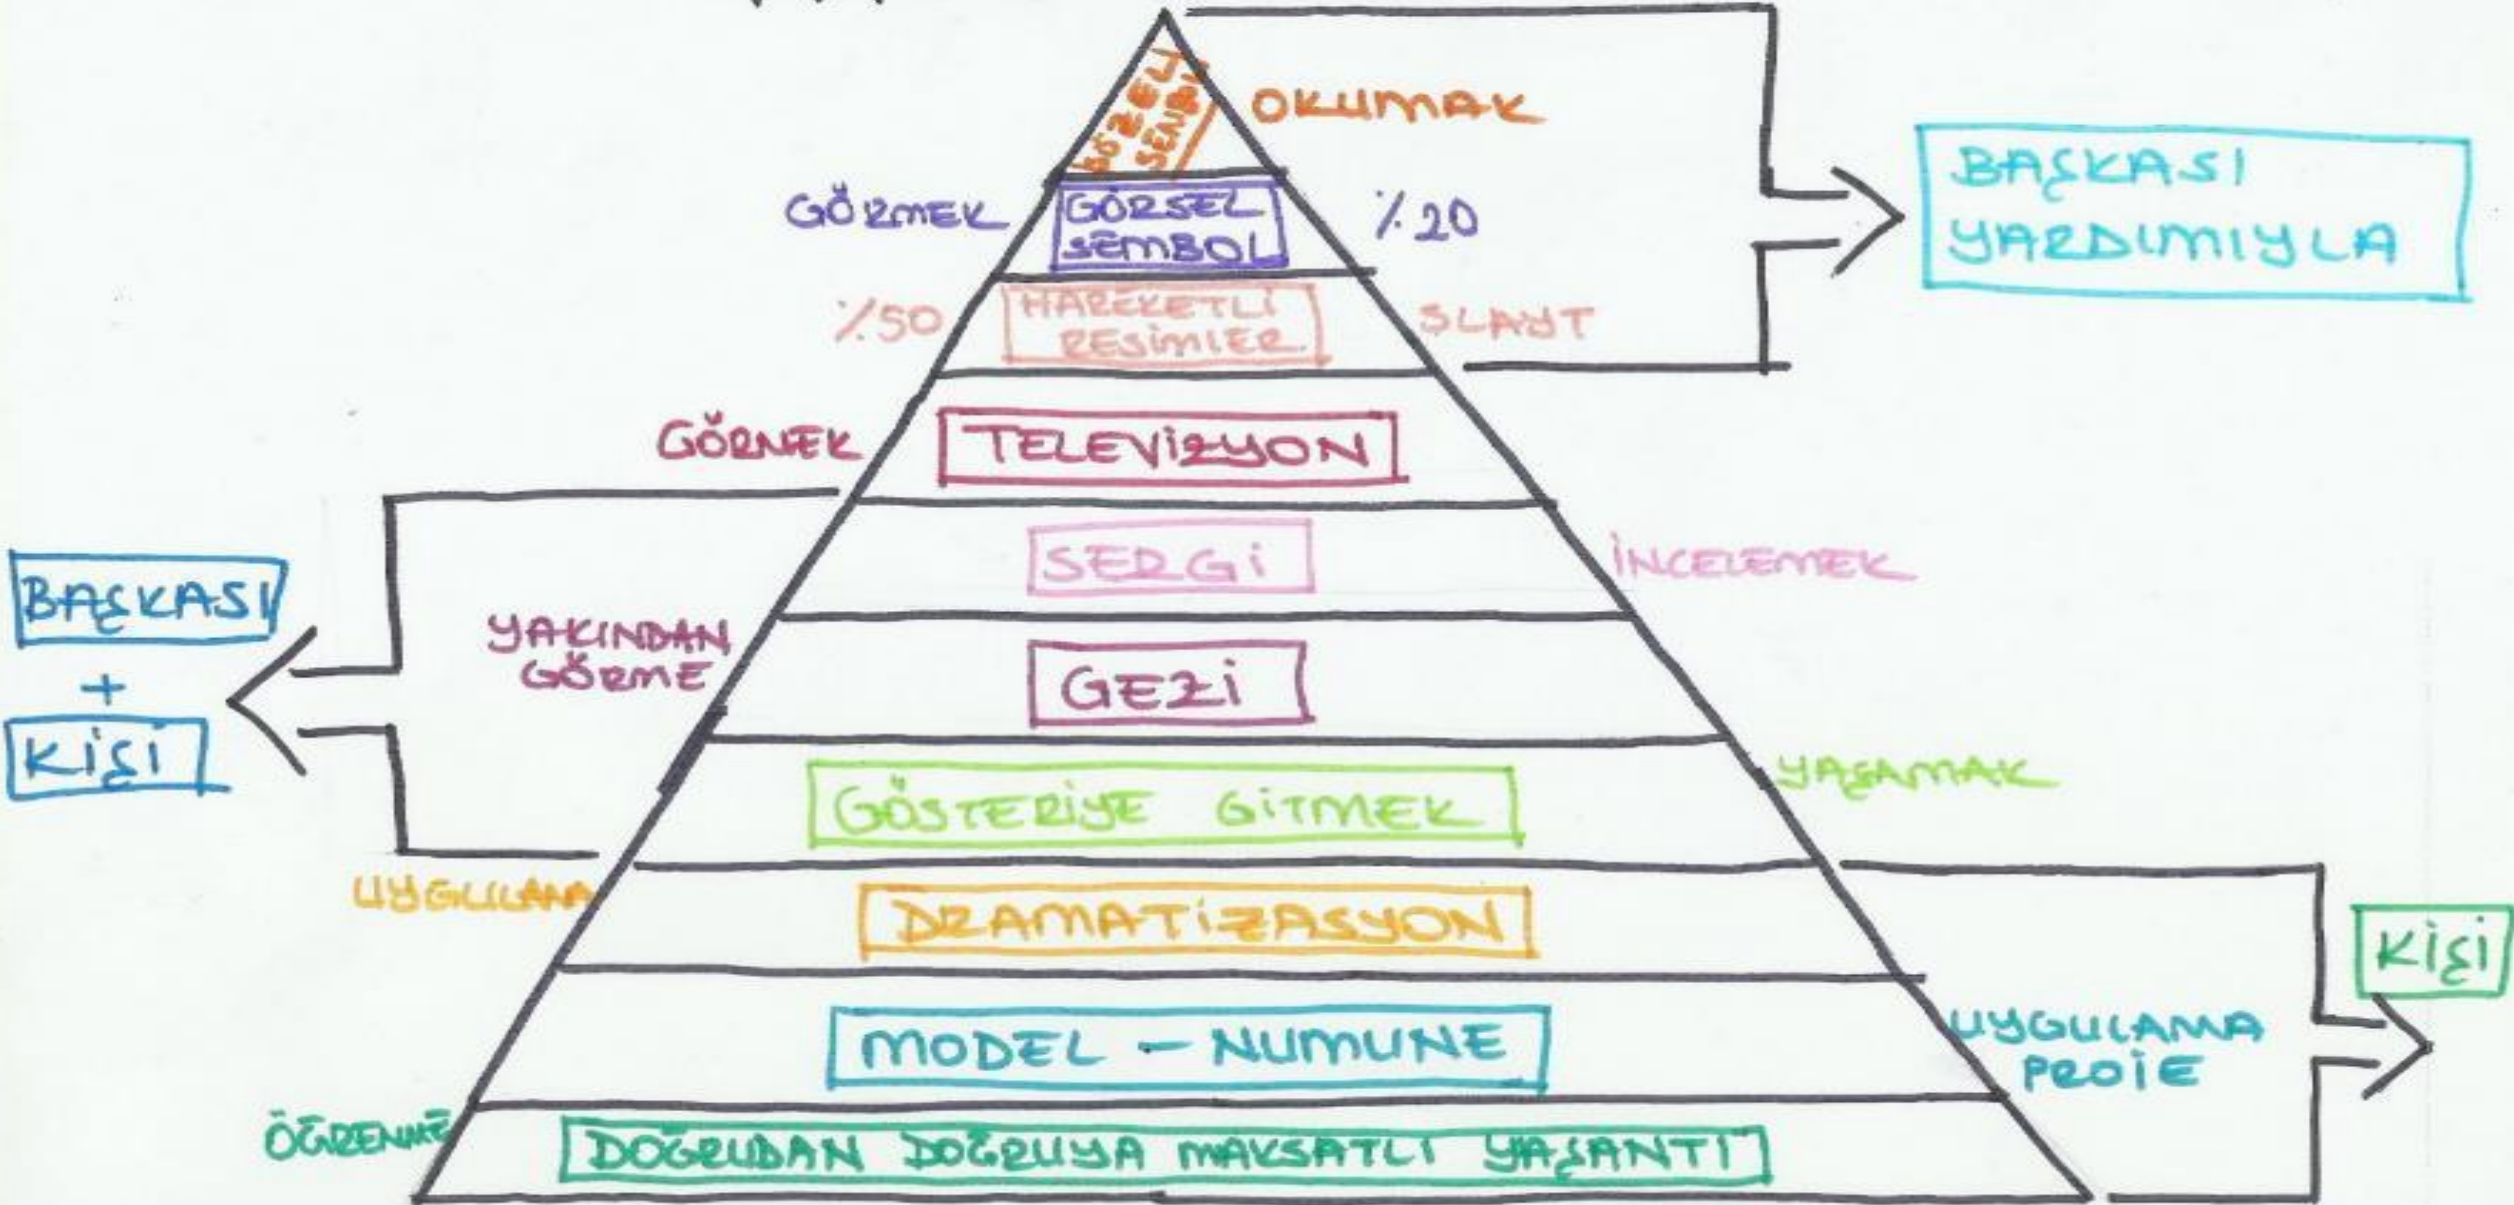 SÖZEL
SEMBOL
OKUMAK
BAŞKASI
YARDIMIYLA
GÖRMEK
GÖRSEL
SEMBOL
%20
%50
HAREKETLİ
RESİMLER
SLAYT
GÖRMEK
TELEVİZYON
SERGİ
İNCELEMEK
BAŞKASI
+
KİŞİ
YAKINDAN
GÖRME
GEZİ
GÖSTERİYE GİTMEK
YAŞAMAK
UYGULAMA
DRAMATİZASYON
KİŞİ
MODEL - NUMUNE
UYGULAMA
PROJE
ÖĞRENME
DOĞRUDAN DOĞRUYA MAKSATLI YAŞANTI